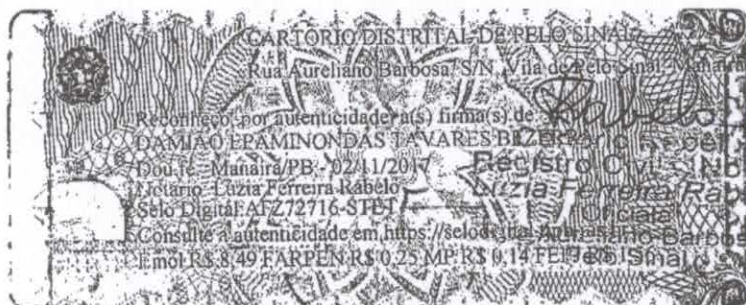 CARTÓRIO DISTRITAL DE PELO SINAL
Rua Aureliano Barbosa, S/N, Vila de Pelo Sinal, Manaíra
Reconheço, por autenticidade, a(s) firma(s) de
DAMIÃO EPAMINONDAS TAVARES BEZERRA
Dou fé. Manaíra/PB - 02/11/2017
Notário: Luzia Ferreira Rabelo
Selo Digital: AFZ72716-
Consulte a autenticidade em https://selodigital
Emol R$ 8,49 FARPEN R$ 0,25 MP R$ 0,14
Rabelo
Registro Civil
Luzia Ferreira
Oficiala
Pelo Sinal